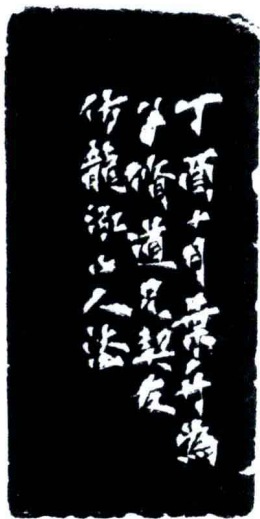 丁酉十月葉舟為
脩道兄契友
仿龍泓山人法